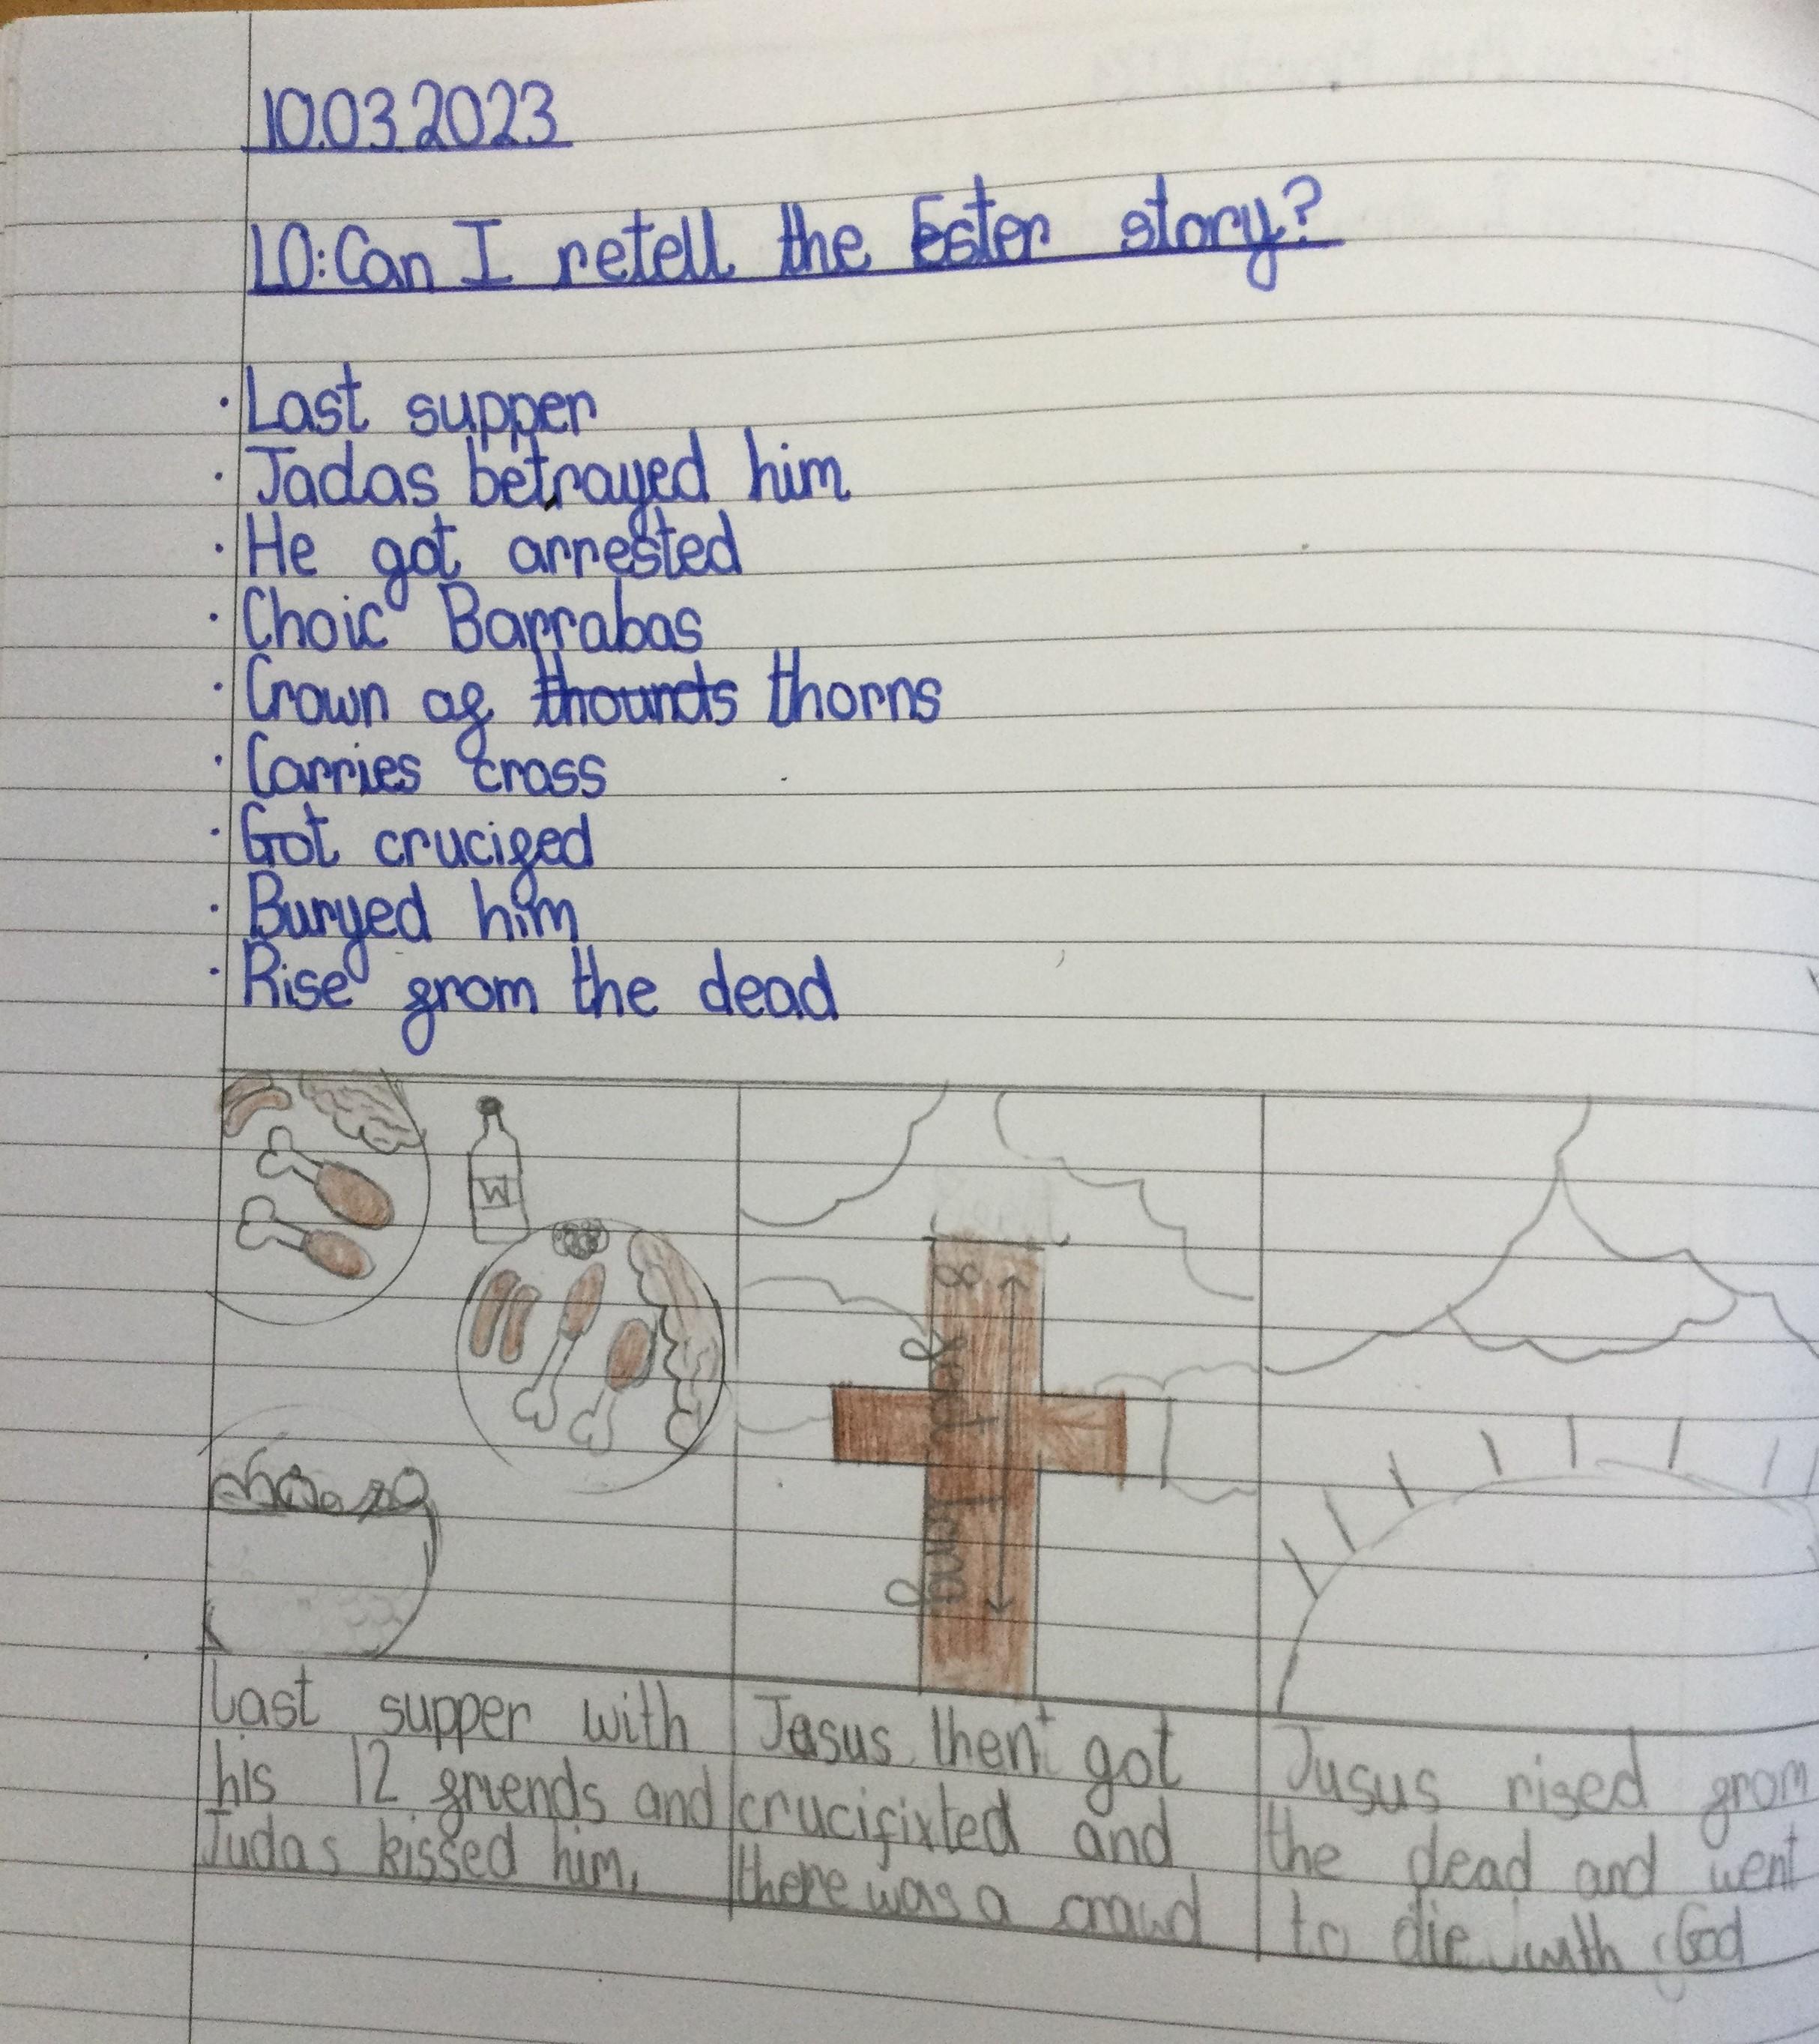 10.03.2023
LO: Can I retell the Ester story?
· Last supper
· Jadas betrayed him
· He got arrested
· Choic Barrabas
· Crown of thounds thorns
· Carries cross
· Got crucifed
· Buryed him
· Rise from the dead
W
8 feet long
Last supper with
his 12 friends and
Judas kissed him.
Jesus then got
crucifixted and
there was a crowd
Jusus rised from
the dead and went
to die with God